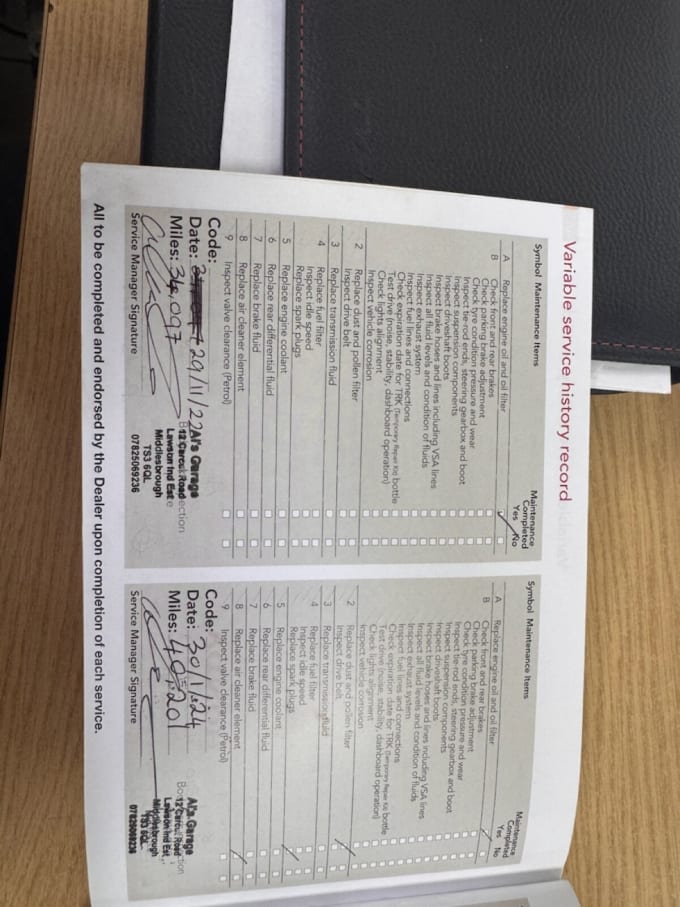 Variable service history record
Symbol Maintenance Items Maintenance Completed Yes No
A Replace engine oil and oil filter
B Check front and rear brakes
Check parking brake adjustment
Check tyre condition pressure and wear
Inspect tie-rod ends, steering gearbox and boot
Inspect suspension components
Inspect driveshaft boots
Inspect brake hoses and lines including VSA lines
Inspect all fluid levels and condition of fluids
Inspect exhaust system
Inspect fuel lines and connections
Check expiration date for TRK (Temporary Repair Kit) bottle
Test drive (noise, stability, dashboard operation)
Check lights alignment
Inspect vehicle corrosion
2 Replace dust and pollen filter
Inspect drive belt
3 Replace transmission fluid
4 Replace fuel filter
Inspect idle speed
Replace spark plugs
5 Replace engine coolant
6 Replace rear differential fluid
7 Replace brake fluid
8 Replace air cleaner element
9 Inspect valve clearance (Petrol)
Code:
Date: 29/11/22
Miles: 34,097
Service Manager Signature
Al's Garage
12 Carcut Road
Lawson Ind Est
Middlesbrough
TS3 6QL
07825069236
Symbol Maintenance Items Maintenance Completed Yes No
A Replace engine oil and oil filter
B Check front and rear brakes
Check parking brake adjustment
Check tyre condition pressure and wear
Inspect tie-rod ends, steering gearbox and boot
Inspect suspension components
Inspect driveshaft boots
Inspect brake hoses and lines including VSA lines
Inspect all fluid levels and condition of fluids
Inspect exhaust system
Inspect fuel lines and connections
Check expiration date for TRK (Temporary Repair Kit) bottle
Test drive (noise, stability, dashboard operation)
Check lights alignment
Inspect vehicle corrosion
2 Replace dust and pollen filter
Inspect drive belt
3 Replace transmission fluid
4 Replace fuel filter
Inspect idle speed
Replace spark plugs
5 Replace engine coolant
6 Replace rear differential fluid
7 Replace brake fluid
8 Replace air cleaner element
9 Inspect valve clearance (Petrol)
Code:
Date: 30/1/24
Miles: 40,201
Service Manager Signature
Al's Garage
Road
Lawson Ind Est
Middlesbrough
TS3 6QL
All to be completed and endorsed by the Dealer upon completion of each service.